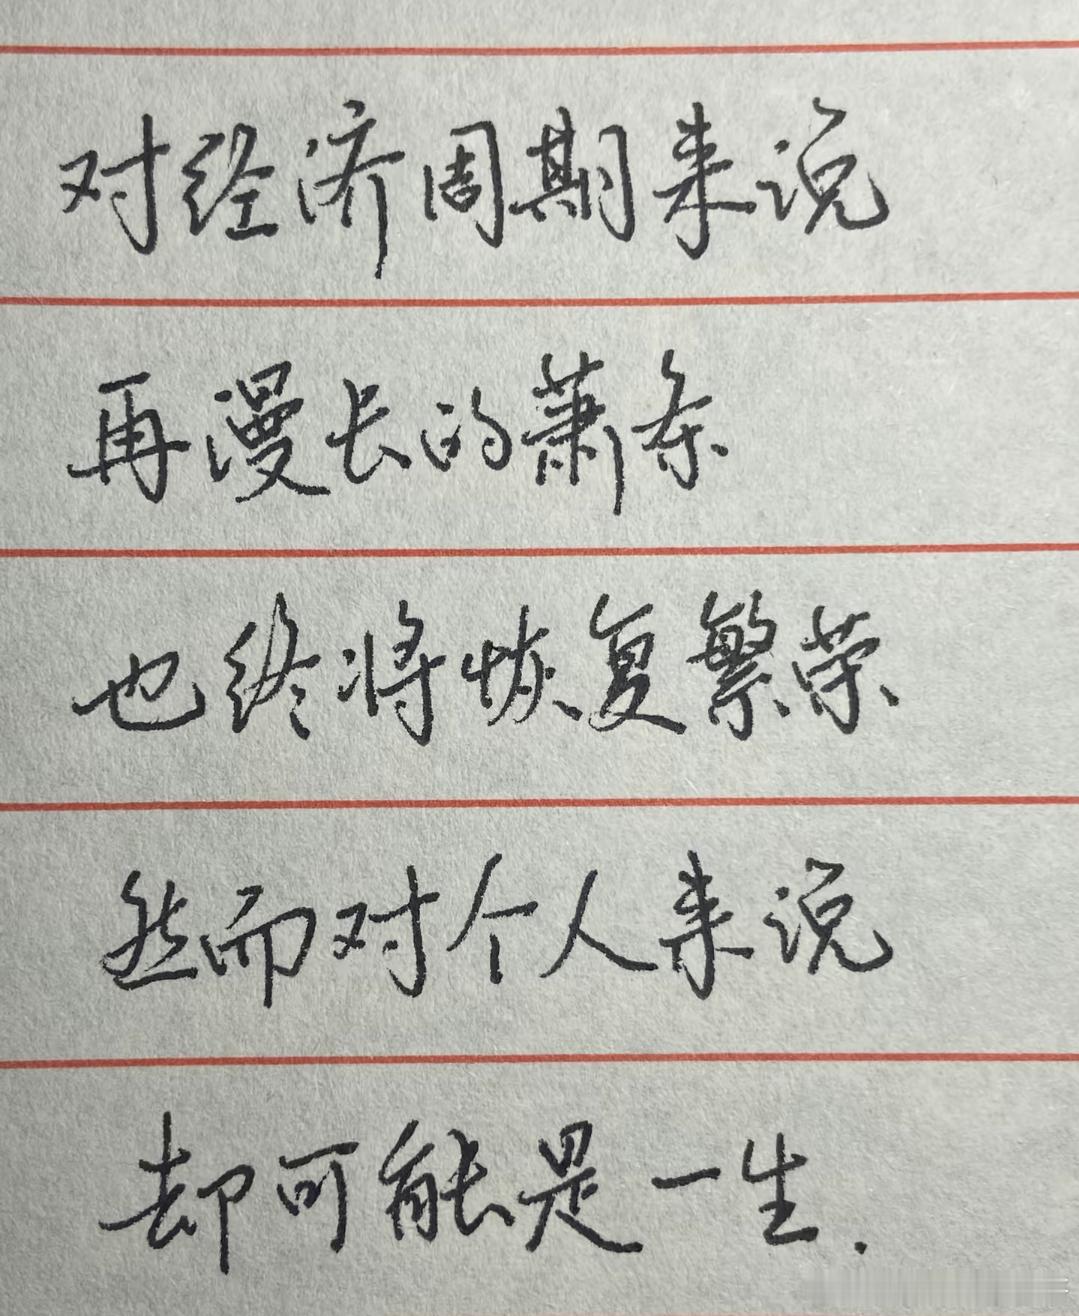 对经济周期来说
再漫长的萧条
也终将恢复繁荣
然而对个人来说
却可能是一生.